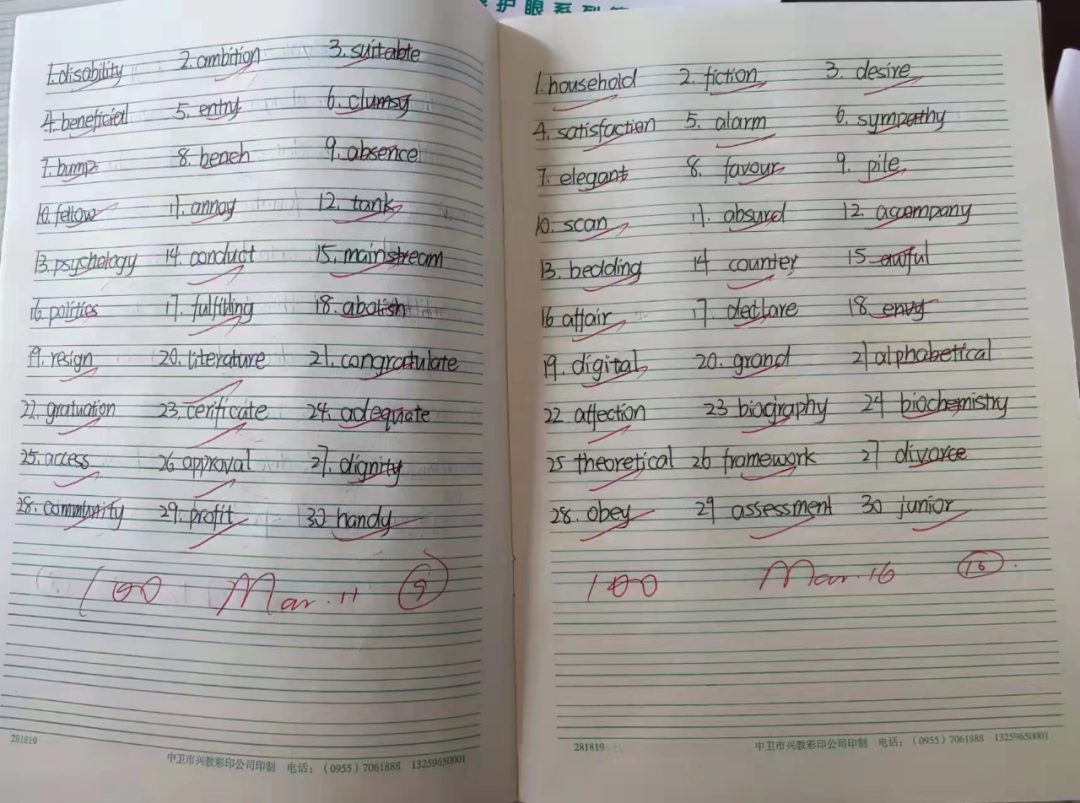 护眼系列
1.disability 2.ambition 3.suitable
4.beneficial 5.entry 6.clumsy
7.bump 8.bench 9.absence
10.fellow 11.annoy 12.tank
13.psychology 14.conduct 15.mainstream
16.politics 17.fulfilling 18.abolish
19.resign 20.literature 21.congratulate
22.gratuation 23.cerificate 24.adequate
25.access 26.approval 27.dignity
28.community 29.profit 30 handy
100 Mar.11 9
281819
中卫市兴教彩印公司印制 电话:(0955)7061888 13259650001
1.household 2.fiction 3.desire
4.satisfaction 5.alarm 6.sympathy
7.elegant 8.favour 9.pile
10.scan 11.absurd 12.accompany
13.bedding 14 counter 15 awful
16 affair 17.declare 18.envy
19.digital 20.grand 21 alphabetical
22 affection 23 biography 24 biochemistry
25 theoretical 26 framework 27 divorce
28.obey 29 assessment 30 junior
100 Mar.16 16
281819
中卫市兴教彩印公司印制 电话:(0955)7061888 13259650001